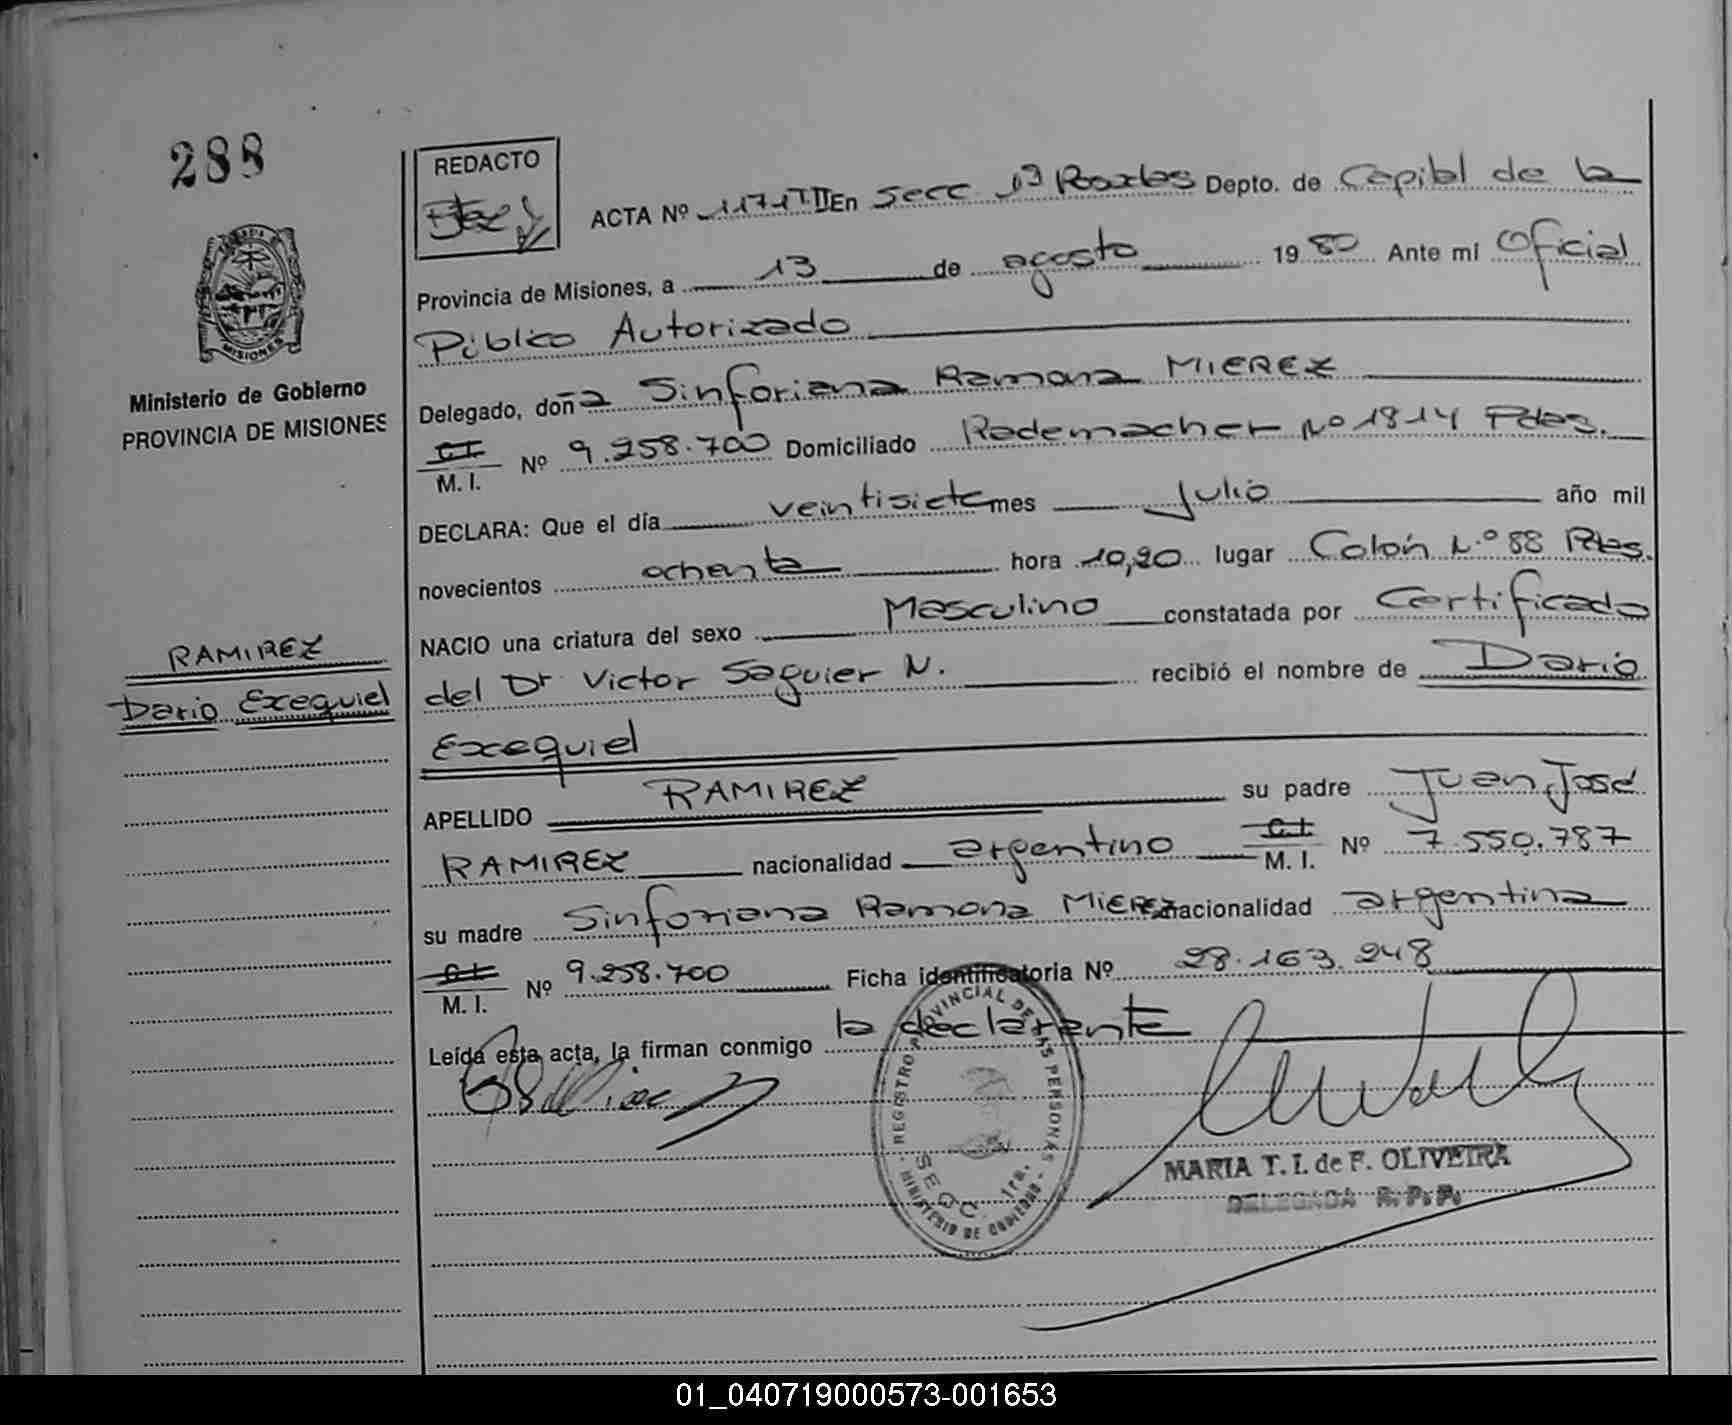 288
REDACTO
ACTA Nº 1171TII En Secc 1ª Posadas Depto. de Capital de la
Provincia de Misiones, a 13 de agosto 1980 Ante mi Oficial
Público Autorizado
Delegado, doña Sinforiana Ramona MIEREZ
C.I.
M. I. Nº 9.258.700 Domiciliado Rademacher Nº 1814 Pdas.
DECLARA: Que el día veintisiete mes Julio año mil
novecientos ochenta hora 10,20 lugar Colón N.º 88 Pdas.
NACIO una criatura del sexo Masculino constatada por Certificado
del Dr Victor Saguier N. recibió el nombre de Dario
Exequiel
APELLIDO RAMIREZ su padre Juan José
RAMIREZ nacionalidad argentino C.I. M. I. Nº 7.550.787
su madre Sinforiana Ramona MIEREZ nacionalidad argentina
C.I.
M. I. Nº 9.258.700 Ficha identificatoria Nº 28.163.248
Leída esta acta, la firman conmigo la declarante
REGISTRO PROVINCIAL DE LAS PERSONAS
SECC. 1ra.
MINISTERIO DE GOBIERNO
MARIA T. I. de F. OLIVEIRA
DELEGADA R. P. P.
MISIONES
Ministerio de Gobierno
PROVINCIA DE MISIONES
RAMIREZ
Dario Exequiel
01_040719000573-001653